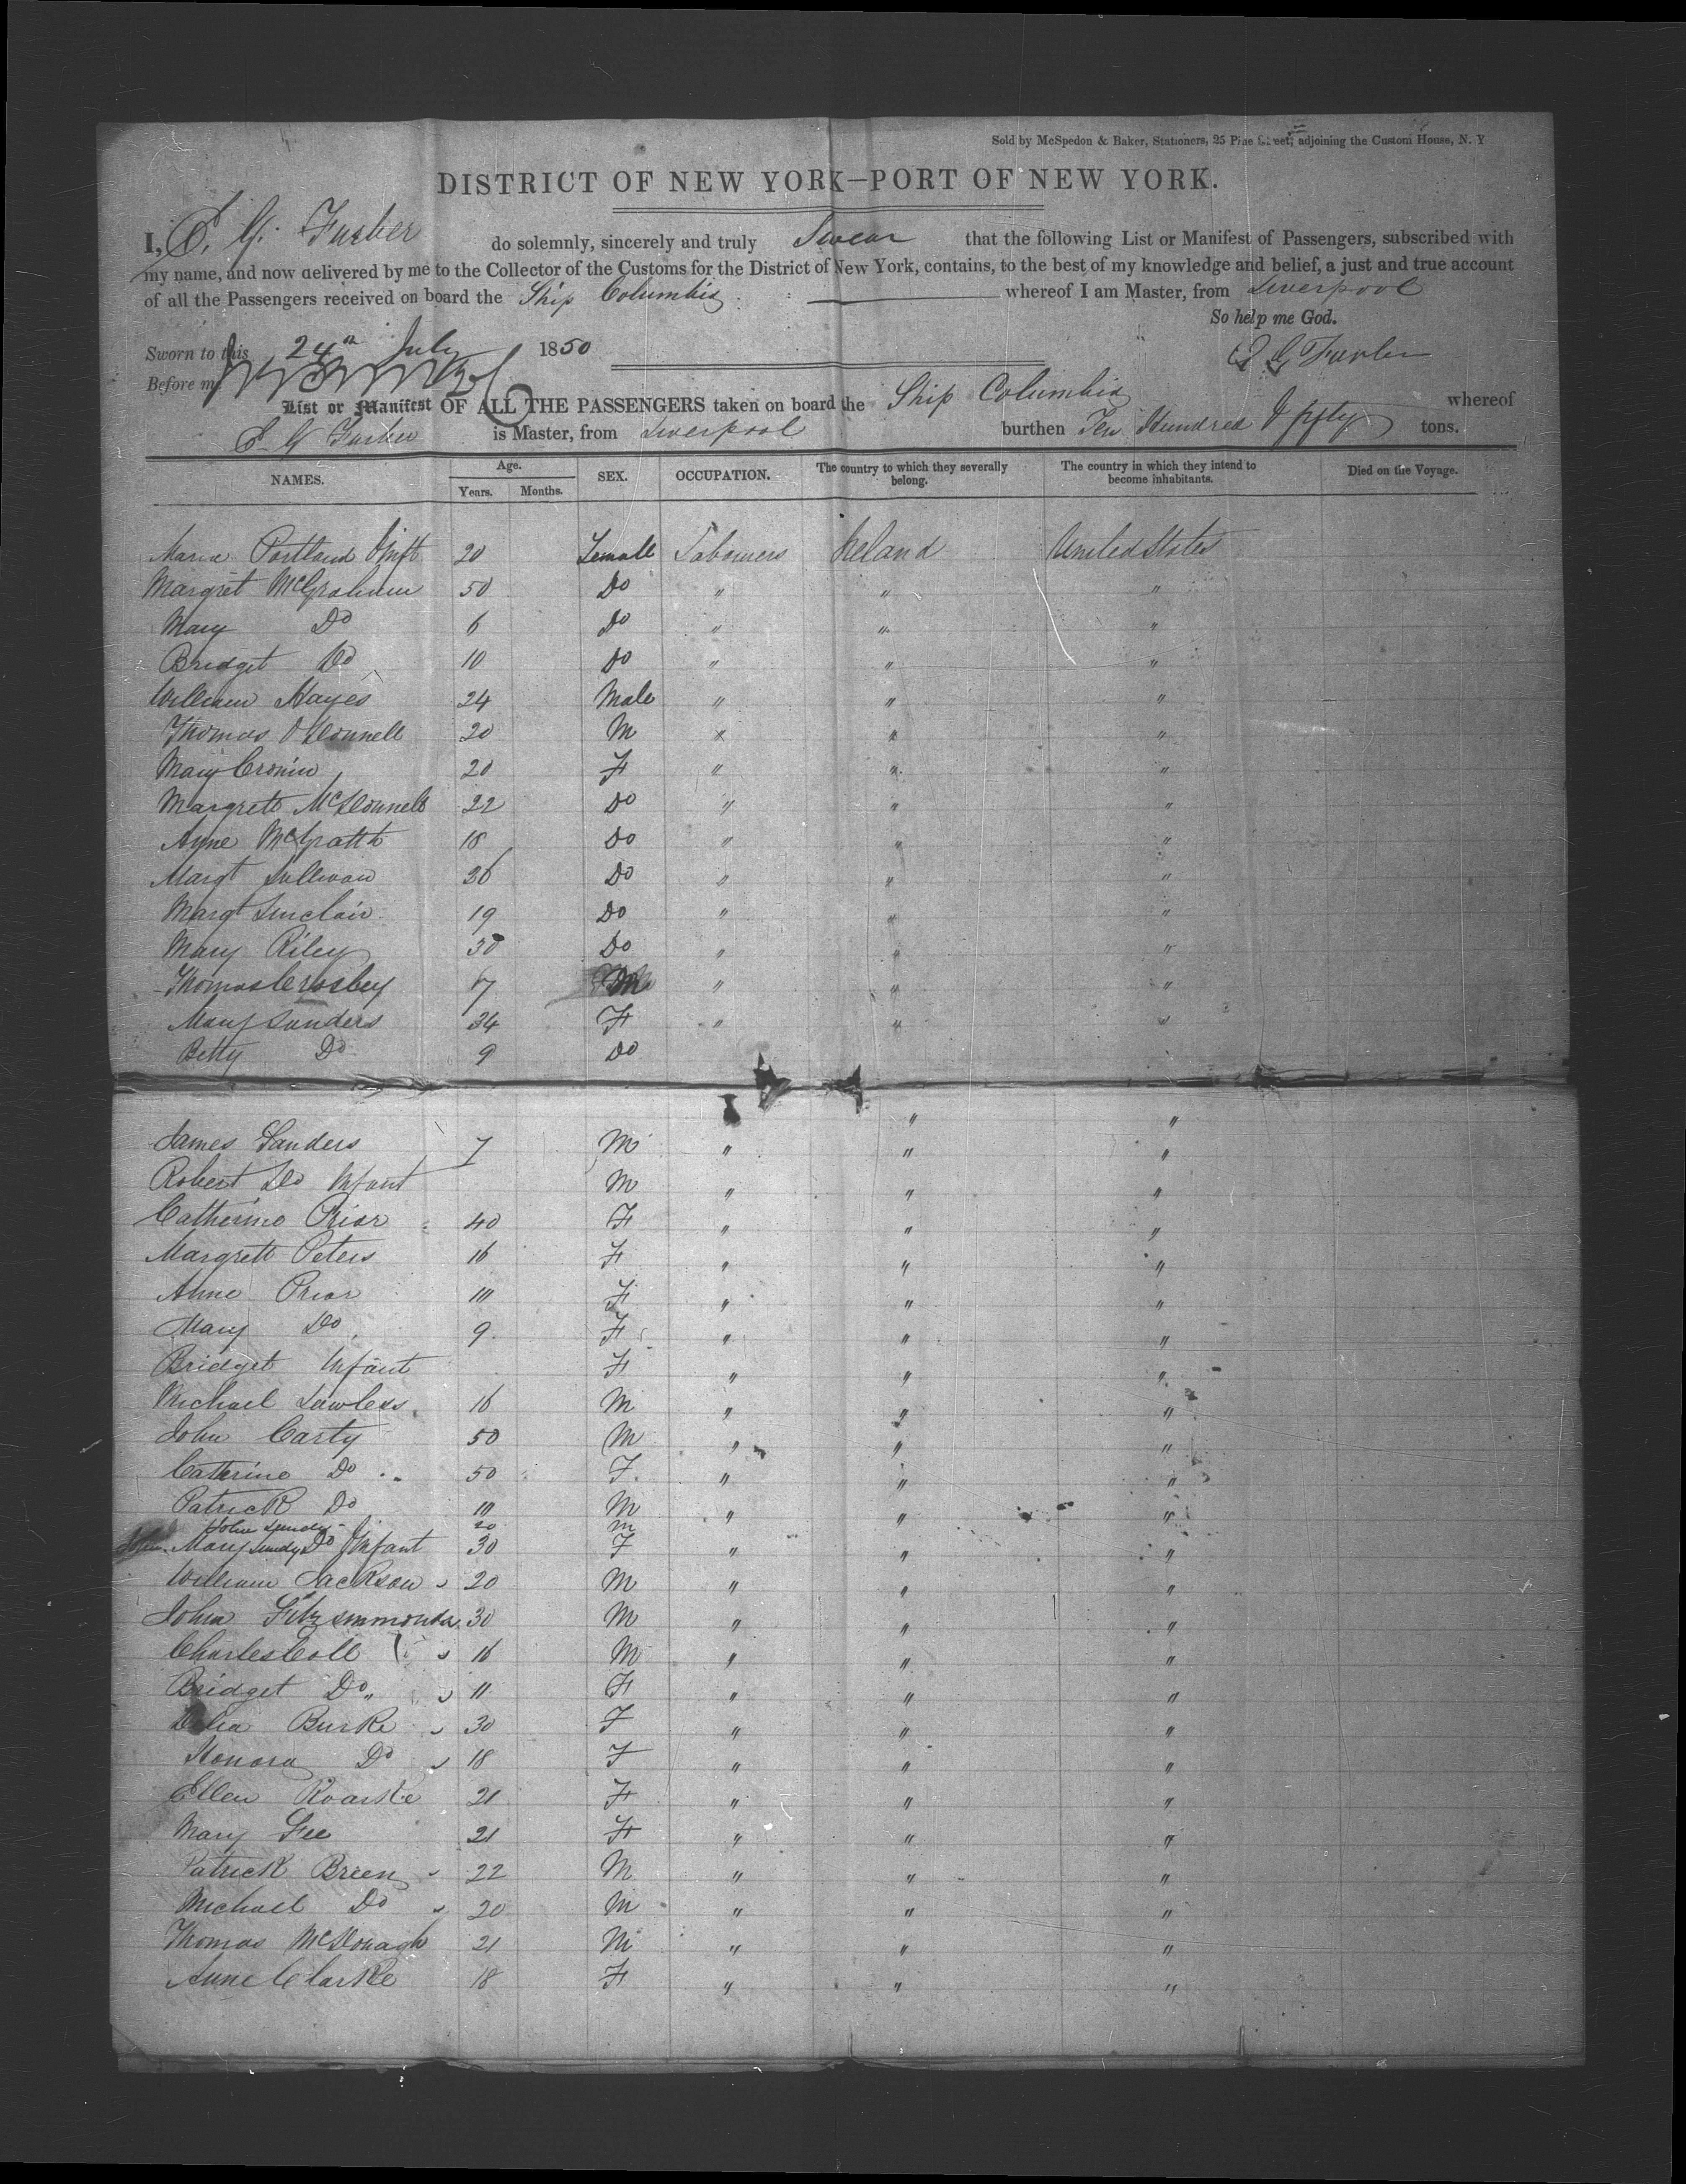 Sold by McSpedon & Baker, Stationers, 25 Pine Street, adjoining the Custom House, N. Y
DISTRICT OF NEW YORK—PORT OF NEW YORK.
I, E. G. Furber do solemnly, sincerely and truly Swear that the following List or Manifest of Passengers, subscribed with
my name, and now delivered by me to the Collector of the Customs for the District of New York, contains, to the best of my knowledge and belief, a just and true account
of all the Passengers received on board the Ship Columbia whereof I am Master, from Liverpool
So help me God.
Sworn to this 24th July 1850
E G Furber
Before me
List or Manifest OF ALL THE PASSENGERS taken on board the Ship Columbia whereof
E G Furber is Master, from Liverpool burthen Ten Hundred & fifty tons.
NAMES. Age. Years. Months. SEX. OCCUPATION. The country to which they severally belong. The country in which they intend to become inhabitants. Died on the Voyage.
Maria Portland & Inft 20 Female Labourers Ireland United States
Margret McGraham 50 Do " " "
Mary Do 6 Do " " "
Bridget Do 10 Do " " "
William Hayes 24 Male " " "
Thomas O'Donnell 20 M " " "
Mary Cronin 20 F " " "
Margrett McDonnell 22 Do " " "
Anne McGratth 18 Do " " "
Margt Sullivan 26 Do " " "
Margt Sinclair 19 Do " " "
Mary Riley 30 Do " " "
Thomas Crosbey 7 M " " "
Mary Sanders 34 F " " "
Betty Do 9 Do " "
James Sanders 7 M " " "
Robert Do Infant M " " "
Catherine Prior 40 F " " "
Margrett Peters 16 F " " "
Anne Prior 10 F " " "
Mary Do 9 F " " "
Bridget Infant F " " "
Michael Lawless 16 M " " "
John Carty 50 M " " "
Catherine Do 50 F " " "
Patrick Do 10 M " " "
John Sundy 20 m
Mary Sundy Do & Infant 30 F " " "
William Jackson 20 M " " "
John Fitzsimmonds 30 M " " "
Charles Coll 16 M " " "
Bridget Do 11 F " " "
Delia Burke 30 F " " "
Honora Do 18 F " " "
Ellen Roarke 21 F " " "
Mary Fee 21 F " " "
Patrick Breen 22 M " " "
Michael Do 20 M " " "
Thomas McDonagh 21 M " " "
Anne Clarke 18 F " " "